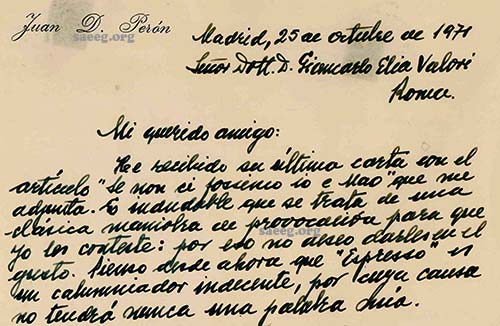 Juan D. Perón
saeeg.org
Madrid, 25 de octubre de 1971
Señor Dott. D. Giancarlo Elia Valori
Roma.
Mi querido amigo:
He recibido su última carta con el
artículo "Se non ci fossimo io e Mao" que me
adjunta. Es indudable que se trata de una
clásica maniobra de provocación para que
yo los conteste: por eso no deseo darles en el
saeeg.org
gusto. Pienso desde ahora que "Espresso" es
un calumniador indecente, por cuya causa
no tendrá nunca una palabra mía.